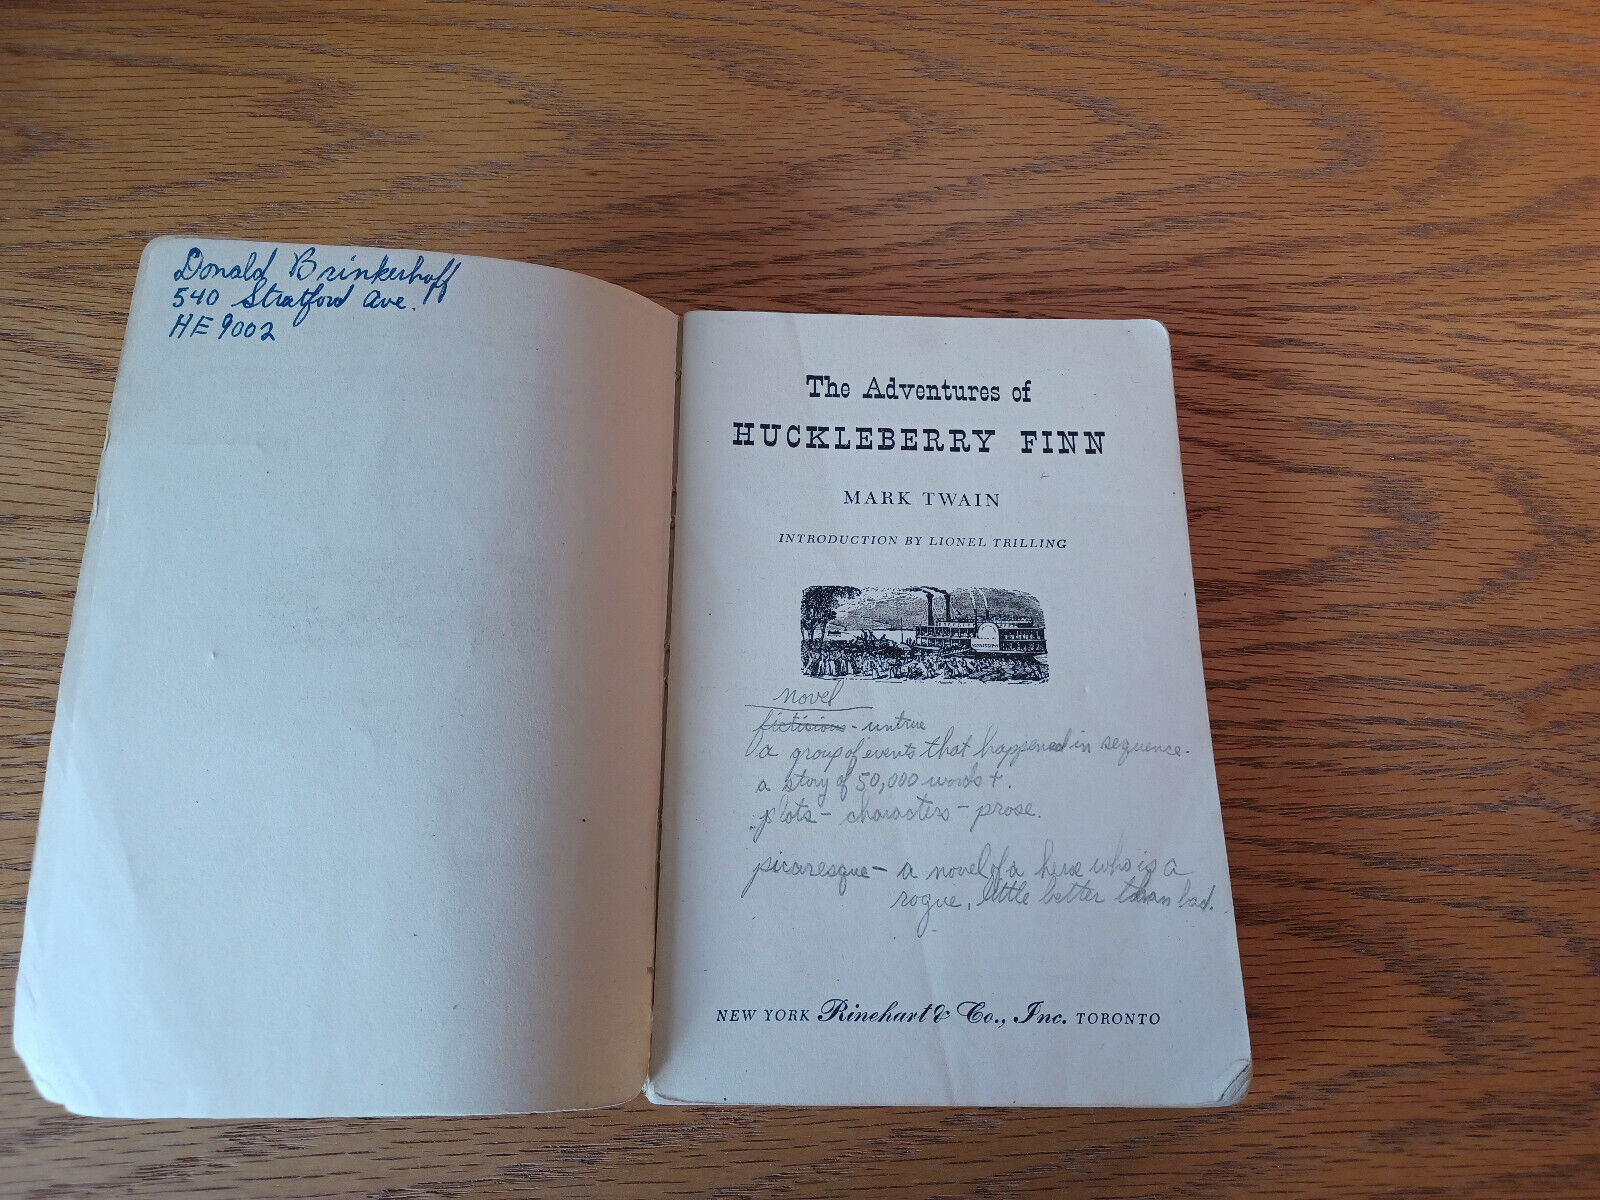 Donald Brinkerhoff
540 Stratford Ave.
HE 9002
The Adventures of
HUCKLEBERRY FINN
MARK TWAIN
INTRODUCTION BY LIONEL TRILLING
MISSISSIPPI
novel
ficticious - untrue
a group of events that happened in sequence.
a story of 50,000 words +.
plots - characters - prose.
picaresque - a novel of a hero who is a
rogue, little better than bad.
NEW YORK Rinehart & Co., Inc. TORONTO